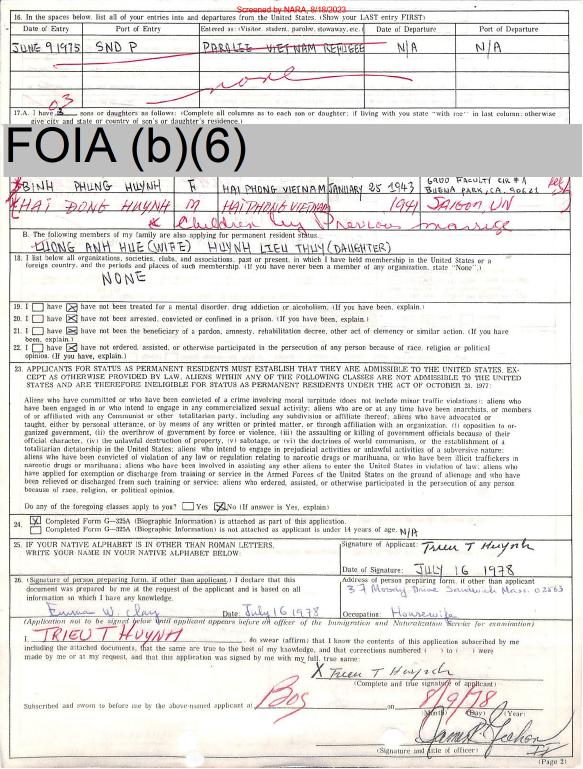 Screened by NARA, 8/18/2023
16. In the spaces below, list all of your entries into and departures from the United States. (Show your LAST entry FIRST)
Date of Entry Port of Entry Entered as: (Visitor, student, parolee, stowaway, etc.) Date of Departure Port of Departure
JUNE 9 1975 SND P PAROLEE VIET NAM REFUGEE N/A N/A
none
17.A. I have 03 sons or daughters as follows: (Complete all columns as to each son or daughter; if living with you state "with me" in last column; otherwise
give city and state or country of son's or daughter's residence.)
FOIA (b)(6)
BINH PHUNG HUYNH F HAI PHONG VIETNAM JANUARY 25 1943 6900 FACULTY CIR # 1 BUENA PARK, CA. 90621
HAI DONG HUYNH M HAI PHONG VIETNAM 1941 SAIGON, VN
* Children by Previous marriage
B. The following members of my family are also applying for permanent resident status:
LUONG ANH HUE (WIFE) HUYNH LIEU THUY (DAUGHTER)
18. I list below all organizations, societies, clubs, and associations, past or present, in which I have held membership in the United States or a
foreign country, and the periods and places of such membership. (If you have never been a member of any organization, state "None".)
NONE
19. I ☐ have ☒ have not been treated for a mental disorder, drug addiction or alcoholism. (If you have been, explain.)
20. I ☐ have ☒ have not been arrested, convicted or confined in a prison. (If you have been, explain.)
21. I ☐ have ☒ have not been the beneficiary of a pardon, amnesty, rehabilitation decree, other act of clemency or similar action. (If you have
been, explain.)
22. I ☐ have ☒ have not ordered, assisted, or otherwise participated in the persecution of any person because of race, religion or political
opinion. (If you have, explain.)
23. APPLICANTS FOR STATUS AS PERMANENT RESIDENTS MUST ESTABLISH THAT THEY ARE ADMISSIBLE TO THE UNITED STATES. EX-
CEPT AS OTHERWISE PROVIDED BY LAW, ALIENS WITHIN ANY OF THE FOLLOWING CLASSES ARE NOT ADMISSIBLE TO THE UNITED
STATES AND ARE THEREFORE INELIGIBLE FOR STATUS AS PERMANENT RESIDENTS UNDER THE ACT OF OCTOBER 28, 1977:
Aliens who have committed or who have been convicted of a crime involving moral turpitude (does not include minor traffic violations); aliens who
have been engaged in or who intend to engage in any commercialized sexual activity; aliens who are or at any time have been anarchists, or members
of or affiliated with any Communist or other totalitarian party, including any subdivision or affiliate thereof; aliens who have advocated or
taught, either by personal utterance, or by means of any written or printed matter, or through affiliation with an organization, (i) opposition to or-
ganized government, (ii) the overthrow of government by force or violence, (iii) the assaulting or killing of government officials because of their
official character, (iv) the unlawful destruction of property, (v) sabotage, or (vi) the doctrines of world communism, or the establishment of a
totalitarian dictatorship in the United States; aliens who intend to engage in prejudicial activities or unlawful activities of a subversive nature;
aliens who have been convicted of violation of any law or regulation relating to narcotic drugs or marihuana, or who have been illicit traffickers in
narcotic drugs or marihuana; aliens who have been involved in assisting any other aliens to enter the United States in violation of law; aliens who
have applied for exemption or discharge from training or service in the Armed Forces of the United States on the ground of alienage and who have
been relieved or discharged from such training or service; aliens who ordered, assisted, or otherwise participated in the persecution of any person
because of race, religion, or political opinion.
Do any of the foregoing classes apply to you? ☐ Yes ☒ No (If answer is Yes, explain)
24. ☒ Completed Form G-325A (Biographic Information) is attached as part of this application.
☐ Completed Form G-325A (Biographic Information) is not attached as applicant is under 14 years of age. N/A
25. IF YOUR NATIVE ALPHABET IS IN OTHER THAN ROMAN LETTERS,
WRITE YOUR NAME IN YOUR NATIVE ALPHABET BELOW:
Signature of Applicant: Trieu T Huynh
Date of Signature: JULY 16 1978
26. (Signature of person preparing form, if other than applicant.) I declare that this
document was prepared by me at the request of the applicant and is based on all
information on which I have any knowledge.
Emma W. Clay Date: July 16 1978
Address of person preparing form, if other than applicant
37 Moody Drive Sandwich Mass. 02563
Occupation: Housewife
(Application not to be signed below until applicant appears before an officer of the Immigration and Naturalization Service for examination)
I, TRIEU T HUYNH, do swear (affirm) that I know the contents of this application subscribed by me
including the attached documents, that the same are true to the best of my knowledge, and that corrections numbered ( ) to ( ) were
made by me or at my request, and that this application was signed by me with my full, true name:
X Trieu T Huynh
(Complete and true signature of applicant)
Subscribed and sworn to before me by the above-named applicant at Bos on 8/9/78
(Month) (Day) (Year)
(Signature and title of officer)
(Page 2)